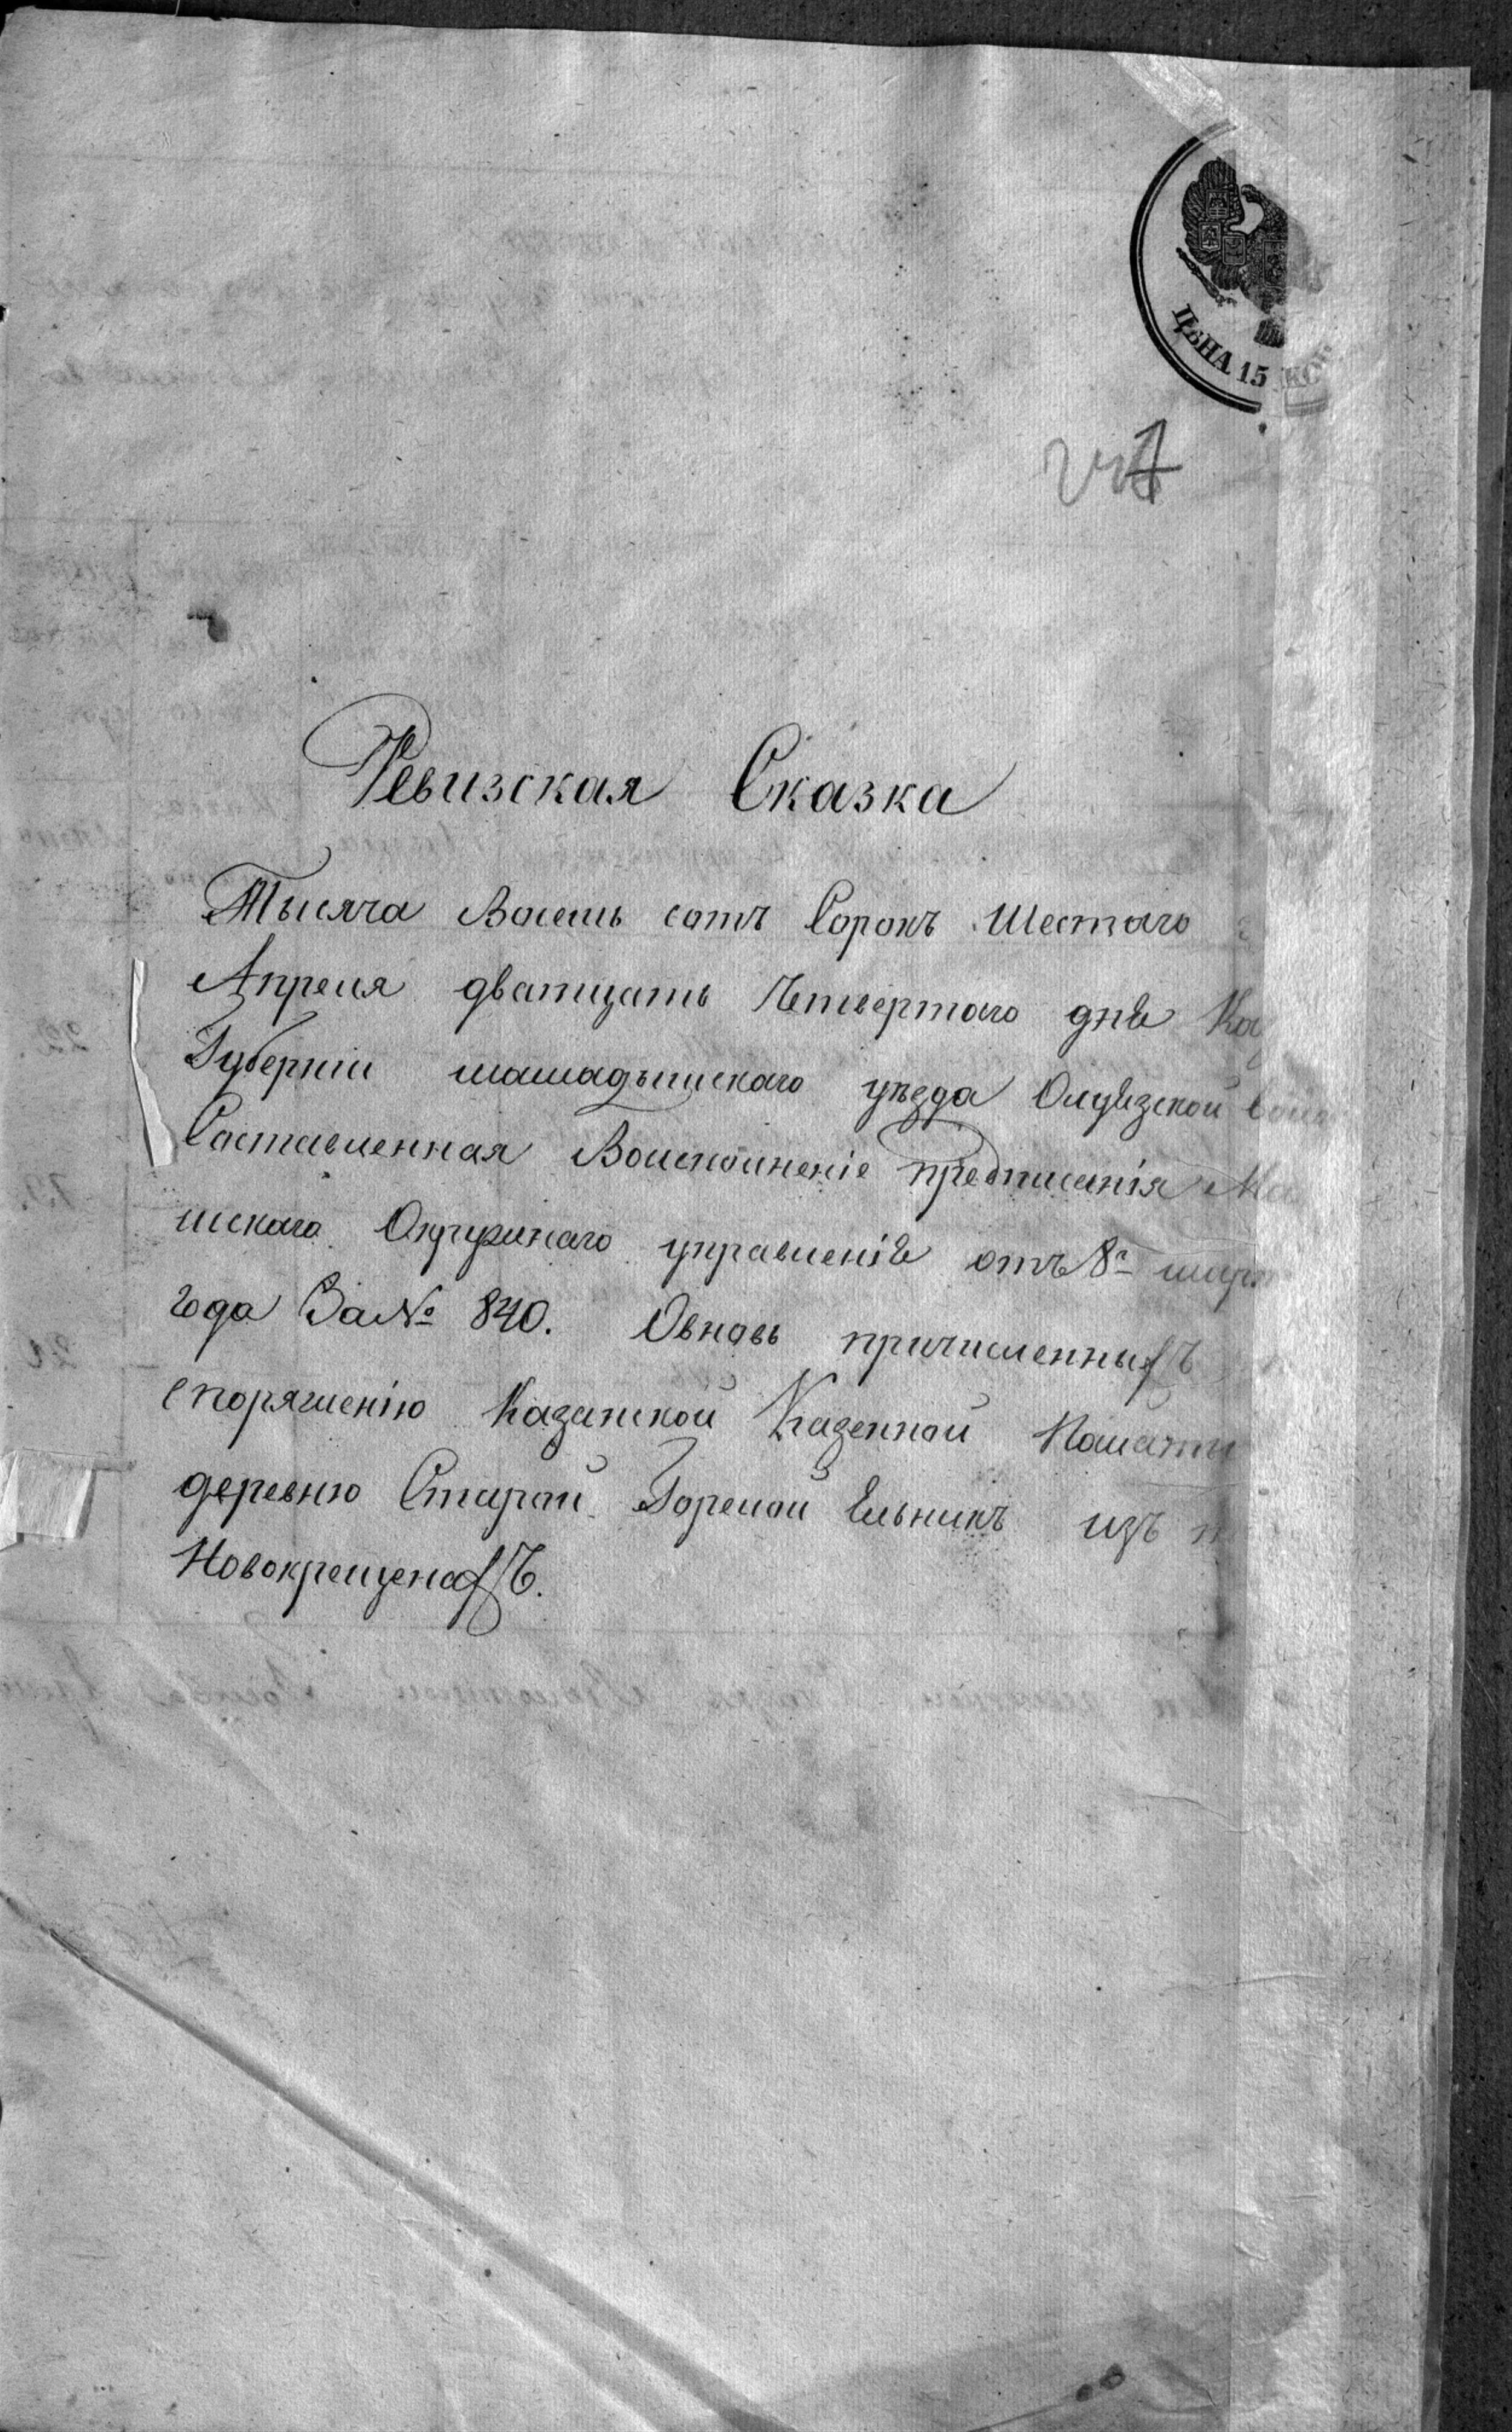 ЦѢНА 15 КОП
Ревизская Сказка
Тысяча Восемь сотъ Сорокъ Шестаго
Апреля дватцать Четвертаго дня Каз
Губерніи мамадышскаго уѣзда Олуязской воло
Составленная Воисполненіе предписанія Ма
шскаго Окружнаго управленія отъ 8го март
года За № 840. Овновь причисленныхъ
споряженію Казанской Казенной Палаты
деревню Старой Горелой Ельникъ изъ
Новокрещенахъ.